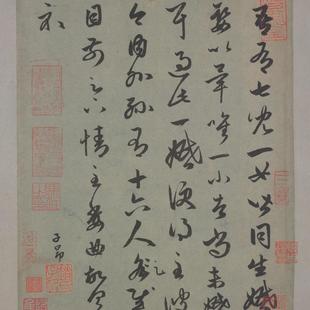 吾有七兒一女皆同生婚
娶以畢唯一小者尚未婚
耳過此一婚便得至彼
今內外孫有十六人足慰
目前足下情至委曲故具
示
子昂